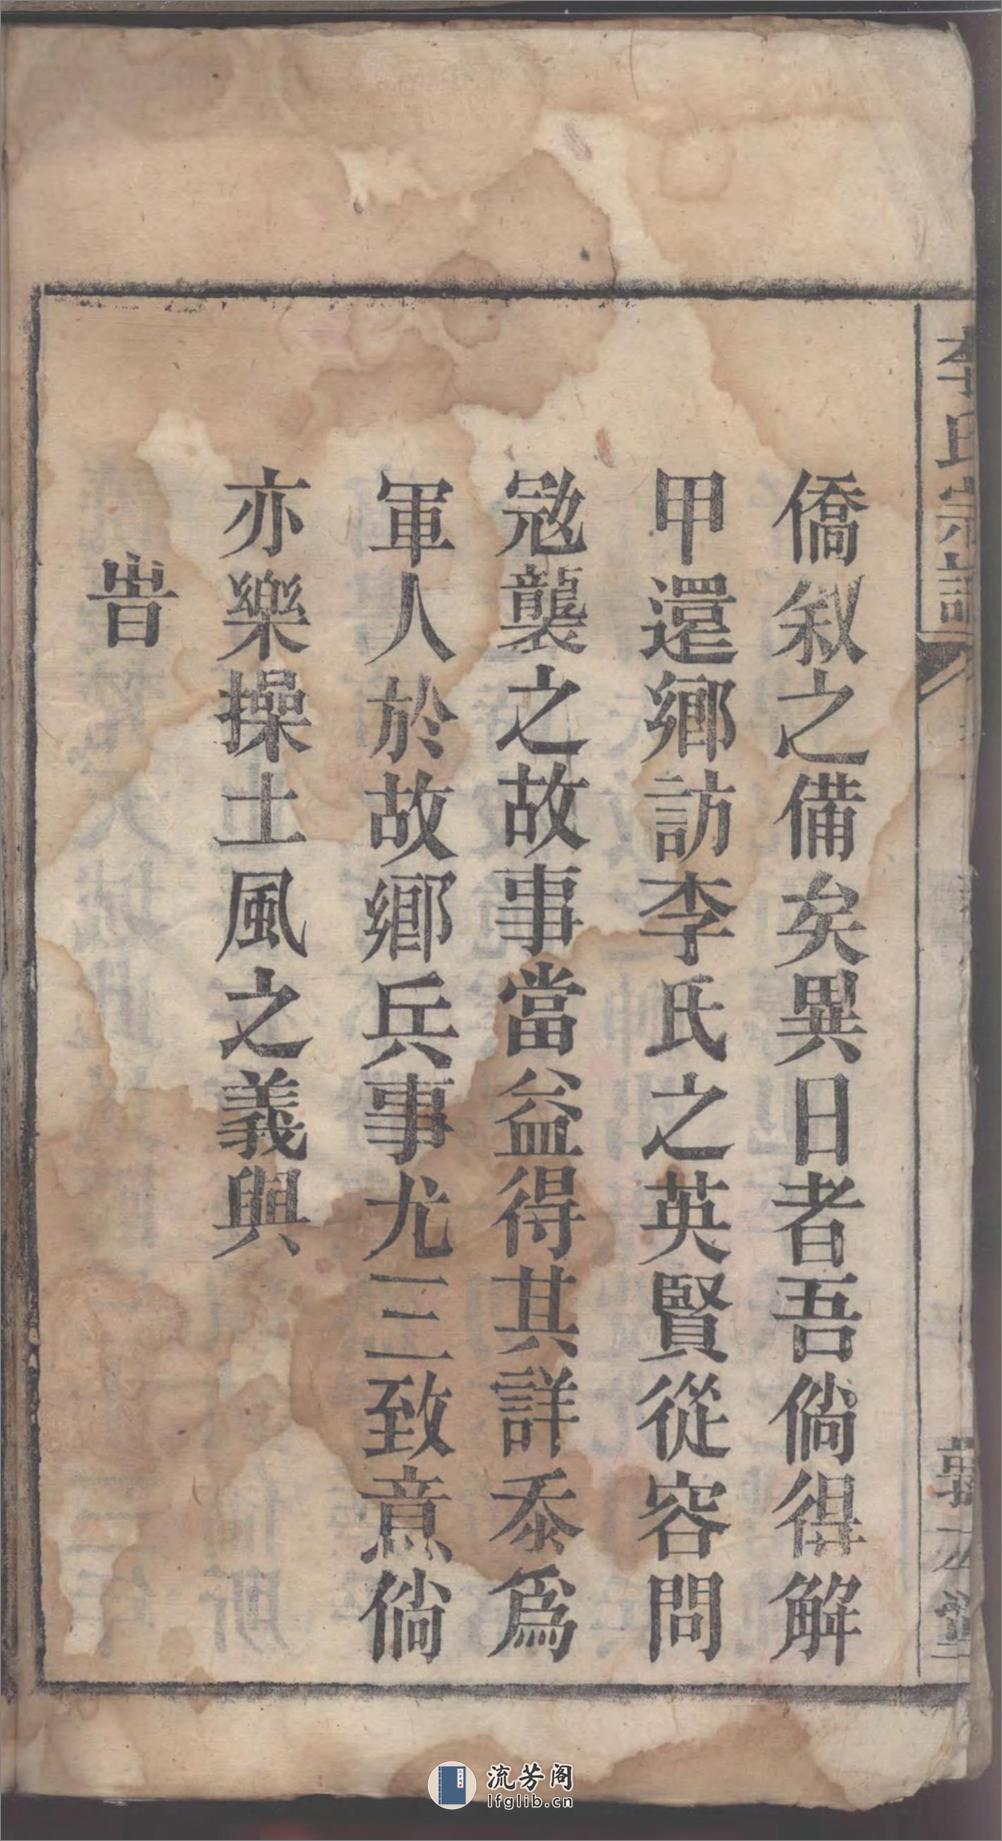 李氏宗譜
僑叙之備矣異日者吾倘得解
甲還鄉訪李氏之英賢從容問
冦襲之故事當益得其詳忝爲
軍人於故鄉兵事尤三致意倘
亦樂操土風之義與
旹
流芳阁
lfglib.cn